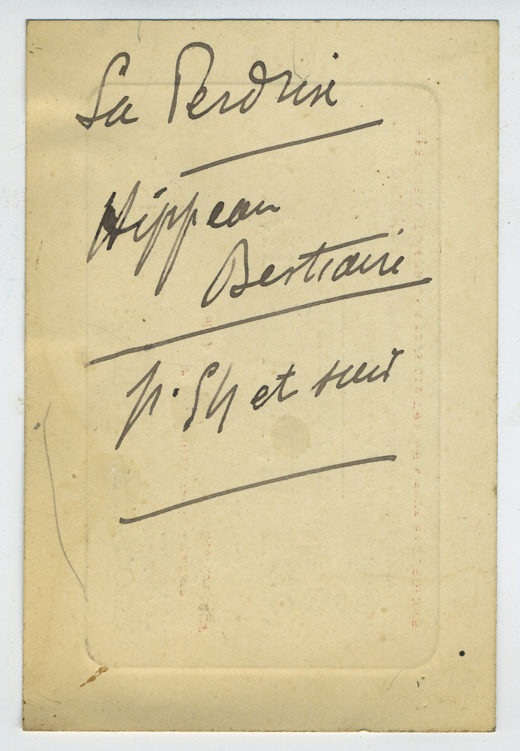 La Perdrix
Hippeau
Bestiaire
p. 54 et suiv